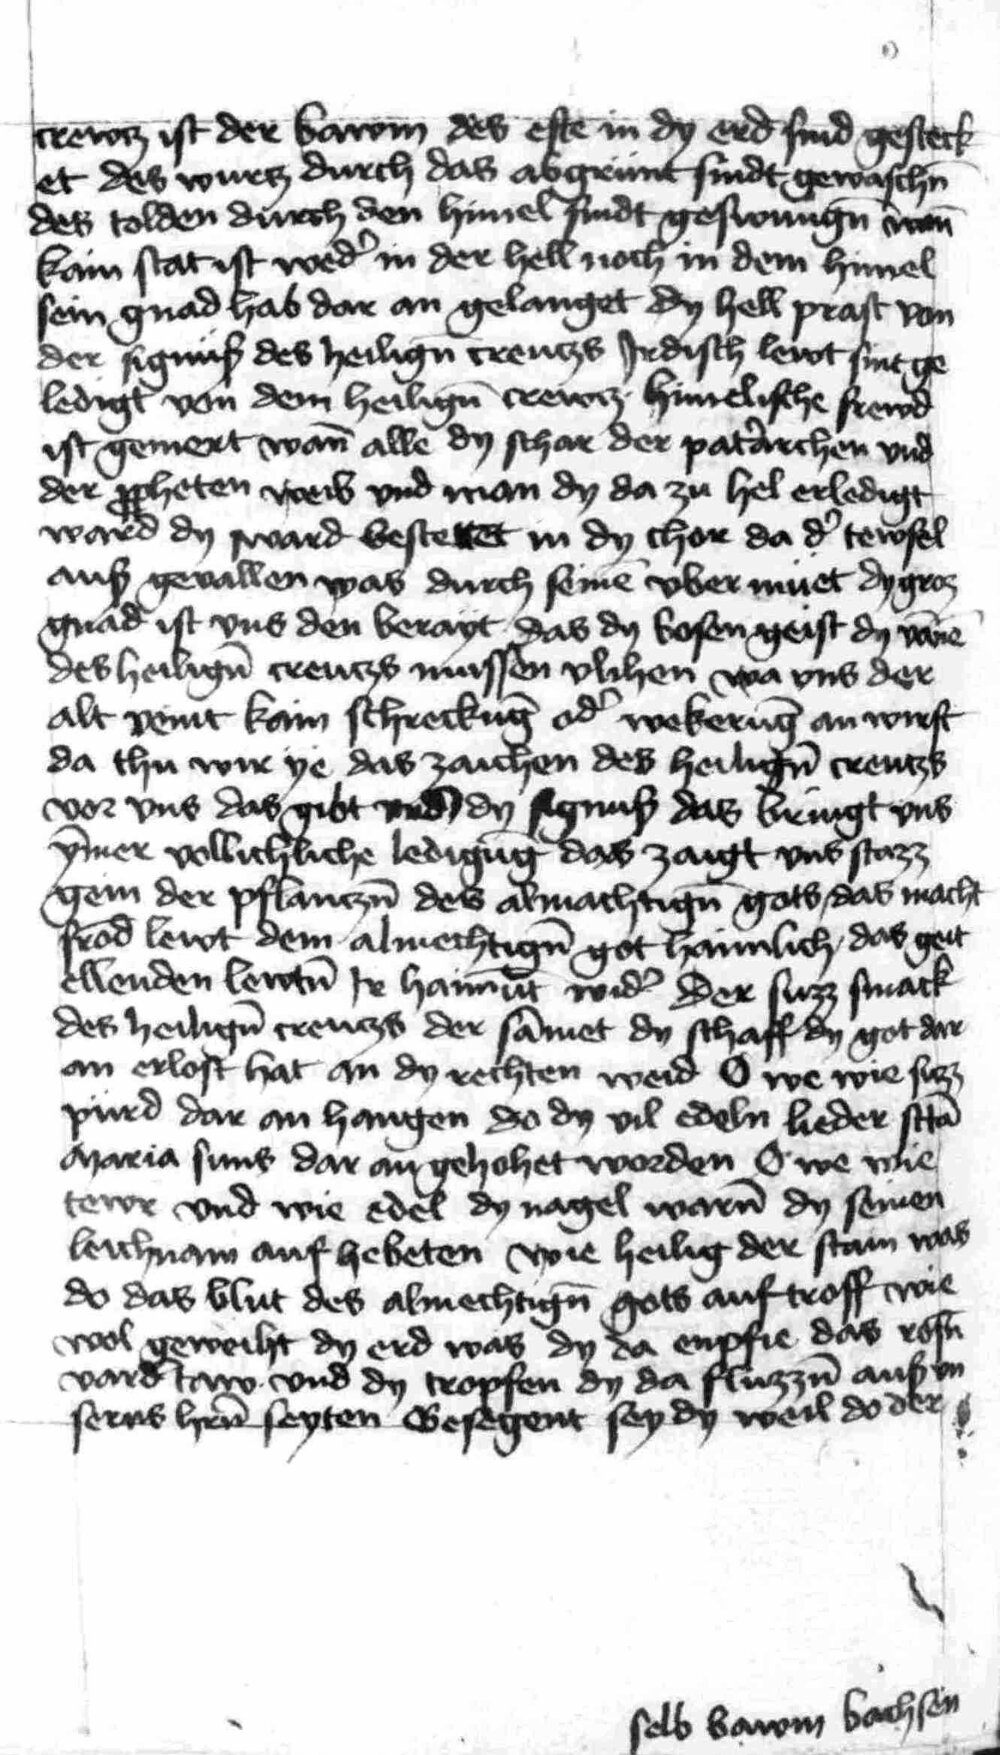 crewtz ist der bawm des este in dy erd sind gesteck
et des wurtz durch das abgrunt sindt gewaschn̄
des tolden durch den himel sindt geswungn̄ wan̄
kain stat ist wed̾ in der hell noch in dem himel
sein gnad hab dar an gelanget dy hell prast von
der signuß des heilign̄ creutzs Irdisch lewt sint ge
ledigt von dem heilign̄ crewtz himelische frewd
ist gemert wan̄ alle dy schar der patriarchen vnd
der ꝓpheten weib vnd man dy da zu hel erledigt
ward dy ward bestettet in dy chor da d̾ tewfel
auß gevallen was durch seinē vber müet dy groz
gnad ist vns den berayt das dy bosen geist dy
des heilign̄ creutzs mussen vlihen wa vns der
alt veint kain schreckūg od̾ wekerūg an wirft
da thu wir ye das zaichen des heilign̄ creutzs
vor vns das gibt dy signuß das bringt vns
ym̄er vollichliche ledigūg das zaigt vns stazz
gein der pflanczn̄ des almachtign̄ gots das macht
frod lewt dem almechtign̄ got haimlich das geit
ellenden lewtn̄ Ir haimūt wid̾ Der suzz smack
des heilign̄ creutzs der sāmet dy schaff dy got dar
an erlost hat an dy rechten weid O we wie suzz
pürd dar an hangen do dy vil edeln lieder sctā
Maria suns dar an gehohet worden O we wie
tewr vnd wie edel dy nagel warn̄ dy seinen
leichnam auf hebeten wie heilig der stam was
do das blut des almechtign̄ gots auf troff wie
wol geweiht dy erd was dy da enpfie das rosn̄
vard taw vnd dy tropfen dy da fluzzn̄ auß vn
sers hrn̄ seyten Gesegent sey dy weil do der
selb bawm bachsen